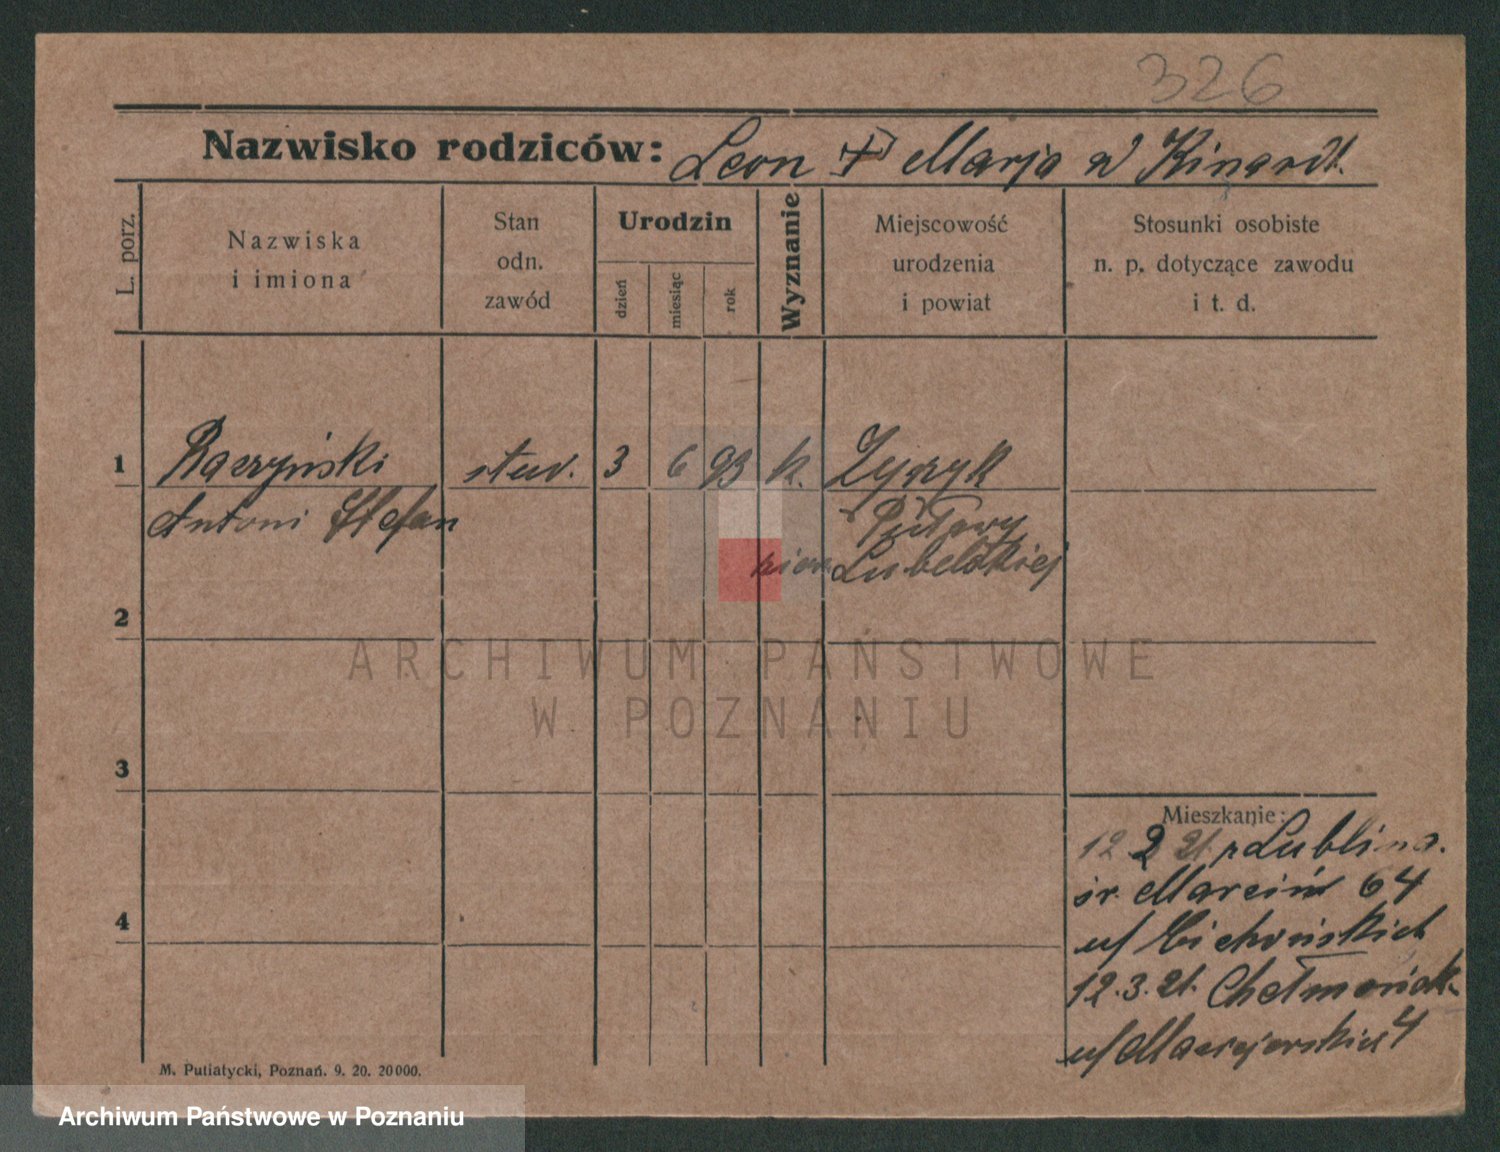 326
Nazwisko rodziców: Leon + Marja
L. porz.
Nazwiska i imiona
Stan odn. zawód
Urodzin
dzień
miesiąc
rok
Wyznanie
Miejscowość urodzenia i powiat
Stosunki osobiste n. p. dotyczące zawodu i t. d.
1 Raczyński 3 6 93 k.
Antoni Stefan Puławy
Lubelskiej
2
ARCHIWUM PAŃSTWOWE
W POZNANIU
3
Mieszkanie:
12 2 21 z Lublina.
śr. Marcin 64
u/ Cichońskich
4
12.3.21.
u/ 4
M. Putiatycki, Poznań. 9. 20. 20000.
Archiwum Państwowe w Poznaniu